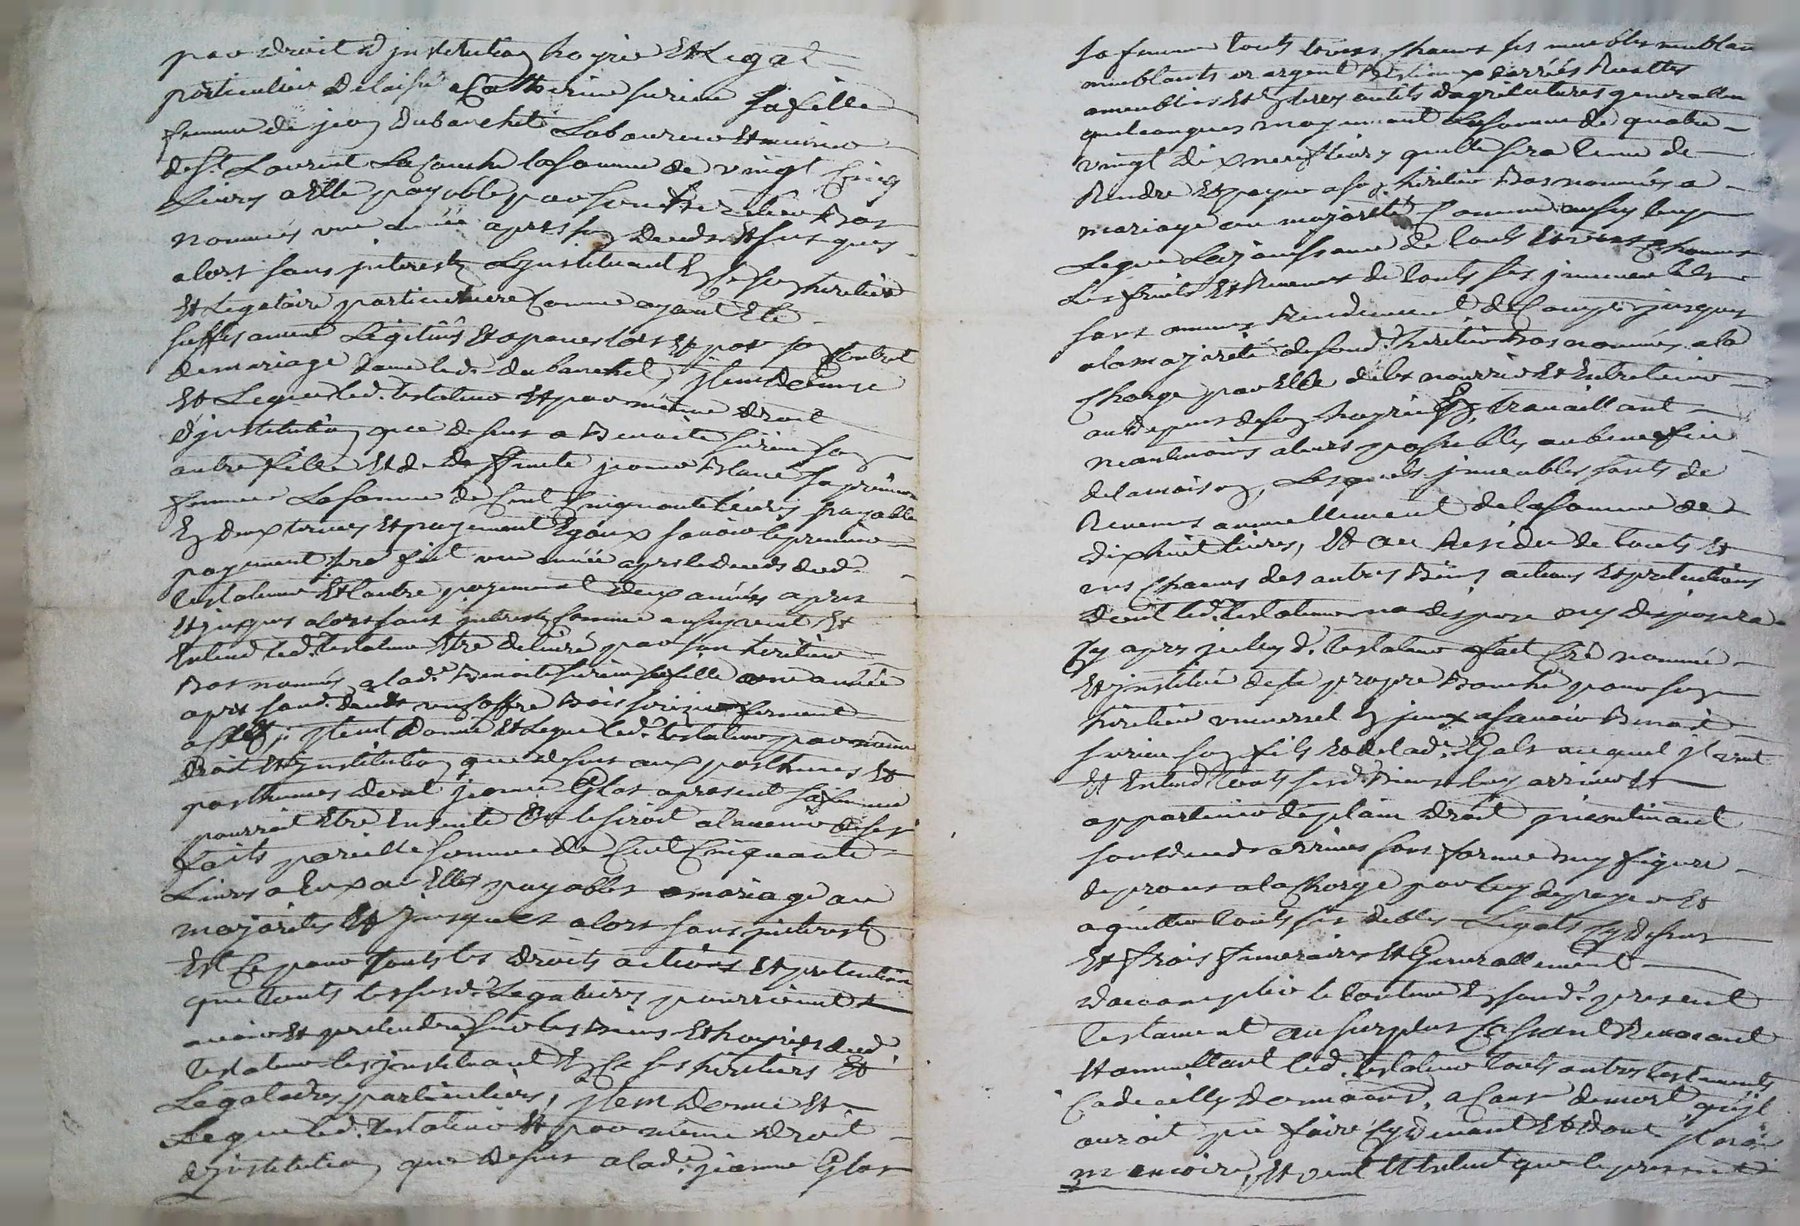 par droit d'institution hoyrie et legat
particulier delaissé a Catherine sirieu sa fille
femme de jean Dubanchet Laboureur
de St. Laurent La Conche la somme de vingt cinq
Livres a elle payable par son heritier bas
nommés une année apres son deceds et jusques
alors sans interests L'instituant en ce son heritiere
et Legataire particuliere comme ayant été
suffisament Legitimé et par son Contrat
de mariage dans led. dubanchet, jtem donne
et Legue led. testateur et par même droit
d'institution que desus a Benoite sirieu sa
autre fille et de deffunte jeanne sa premiere
femme La somme de Cent Cinquante Livres payable
En deux termes et payement Egaux savoir le premier
payement sera fait une année apres le deceds dud.
testateur et l'autre payement deux années apres
et jusques alors sans interests comme aussy veut et
Entend led. testateur être delivré par son heritier
bas nommé a lad. Benoite sirieu sa fille une année
apres sond. deceds un coffre bois fermant
a clef, jtem donne et Legue led. testateur par même
droit et institution que desus aux posthumes et
posthumes dont jeanne Glas apresent sa femme
pourroit être Enceinte ou le seroit a l'avenir de ses
faits pareille somme de Cent Cinquante
Livres a Eux ou Elles payables a mariage ou
majorités et jusques alors sans interests
Et Ce pour touts les droits actions et pretentions
que touts les susd. Legataires pourroient
avoir et pretendre sur les biens et hoyries dud.
testateur les instituant En Ce ses heritiers et
Legataires particuliers, jtem donne et
Legue led. testateur et par même droit
d'institution que desus a lad. jeanne Glas
sa femme touts et uns chacuns ses meubles meublans
meublants or argent Bestiaux Recoltes
ameublies et outils d'agricultures generallement
quelconques moyennant La somme de quatre
vingt dix neuf livres quelle sera tenue de
Rendre et payer a son heritier bas nommés a
mariage ou majorité Comme aussy luy
Legue La jouissance de touts et uns chacuns
Les fruits et Revenus de touts ses jmmeubles
sans aucuns Rendement de Compte jusques
a la majorité de sond. heritier bas nommés a la
Charge par Elle de les nourrir et Entretenir
aux depens de son hoyrie En travaillant
neantmoins a leurs possibles au benefice
de la maison, Lesquels jmmeubles sonts de
Revenus annuellement de la somme de
dix huit livres, Et au Residu de touts et
uns chacuns des autres Biens actions et pretentions
dont led. testateur na dispose ny disposera
Cy apres jceluy d. testateur a fait Créé nommé
Et institué de sa propre Bouche pour son
heritier universel Benoit
sirieu son fils et de lad. Glas auquel jl veut
Et Entend touts sesd. Biens luy arriver et
appartenir de plain droit jncontinant
sond. deceds arrivé sans forme ny figure
de proces a la charge par luy de payer et
aquitter touts ses debtes Legats Cy desus
Et frais funeraires Et Generallement
d'accomplir le Contenu En sond. present
testament au surplus Cassant Revocant
Et annullant led. testateur touts autres testaments
Codicilles donnations, a Cause de mort qu'il
auroit pu faire Cy devant Et dont jl
memoire, Et veut Et Entend que le present